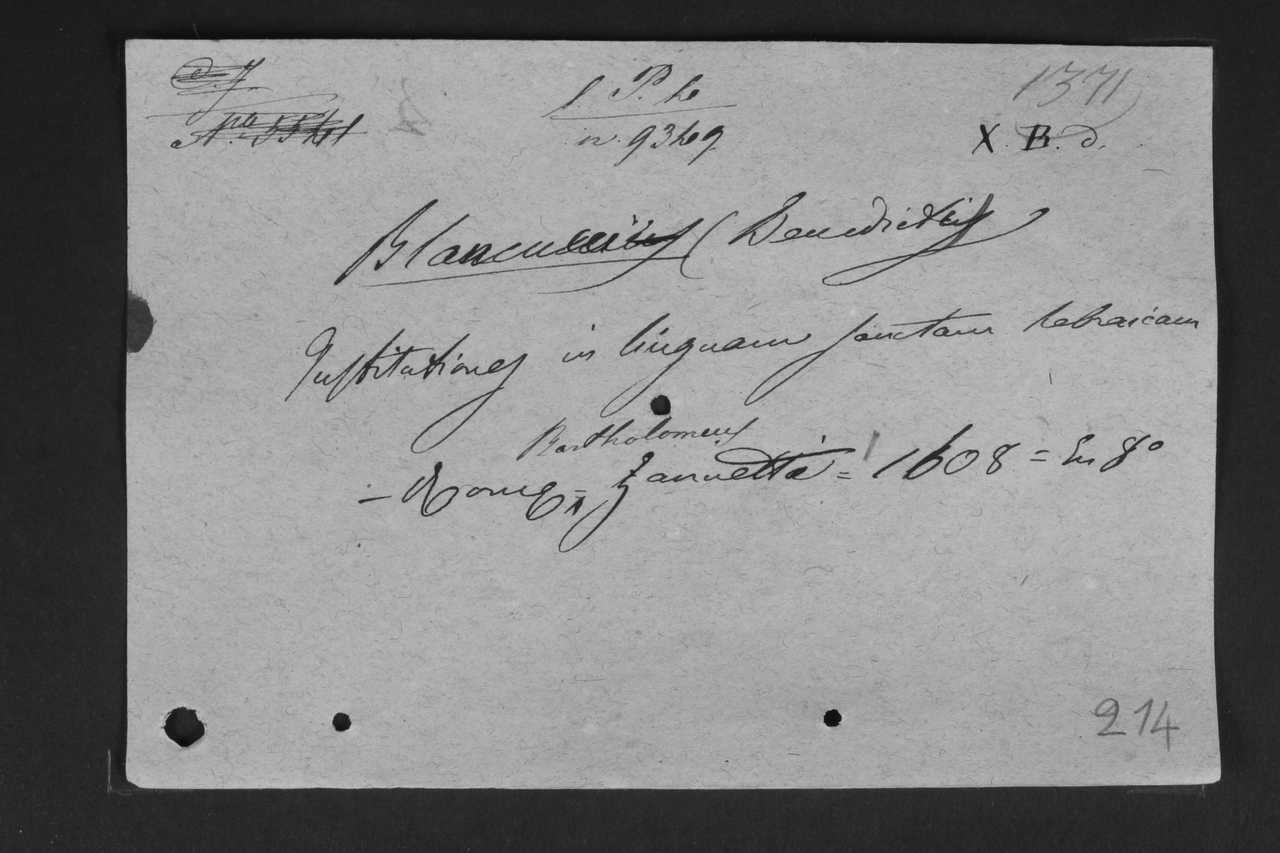 1371
n. 9349
X. B. d.
Blancuccius (Benedictus)
Institutiones in linguam sanctam hebraicam
Bartholomeus
– Romæ = Zannetta = 1608 = In 8º
214